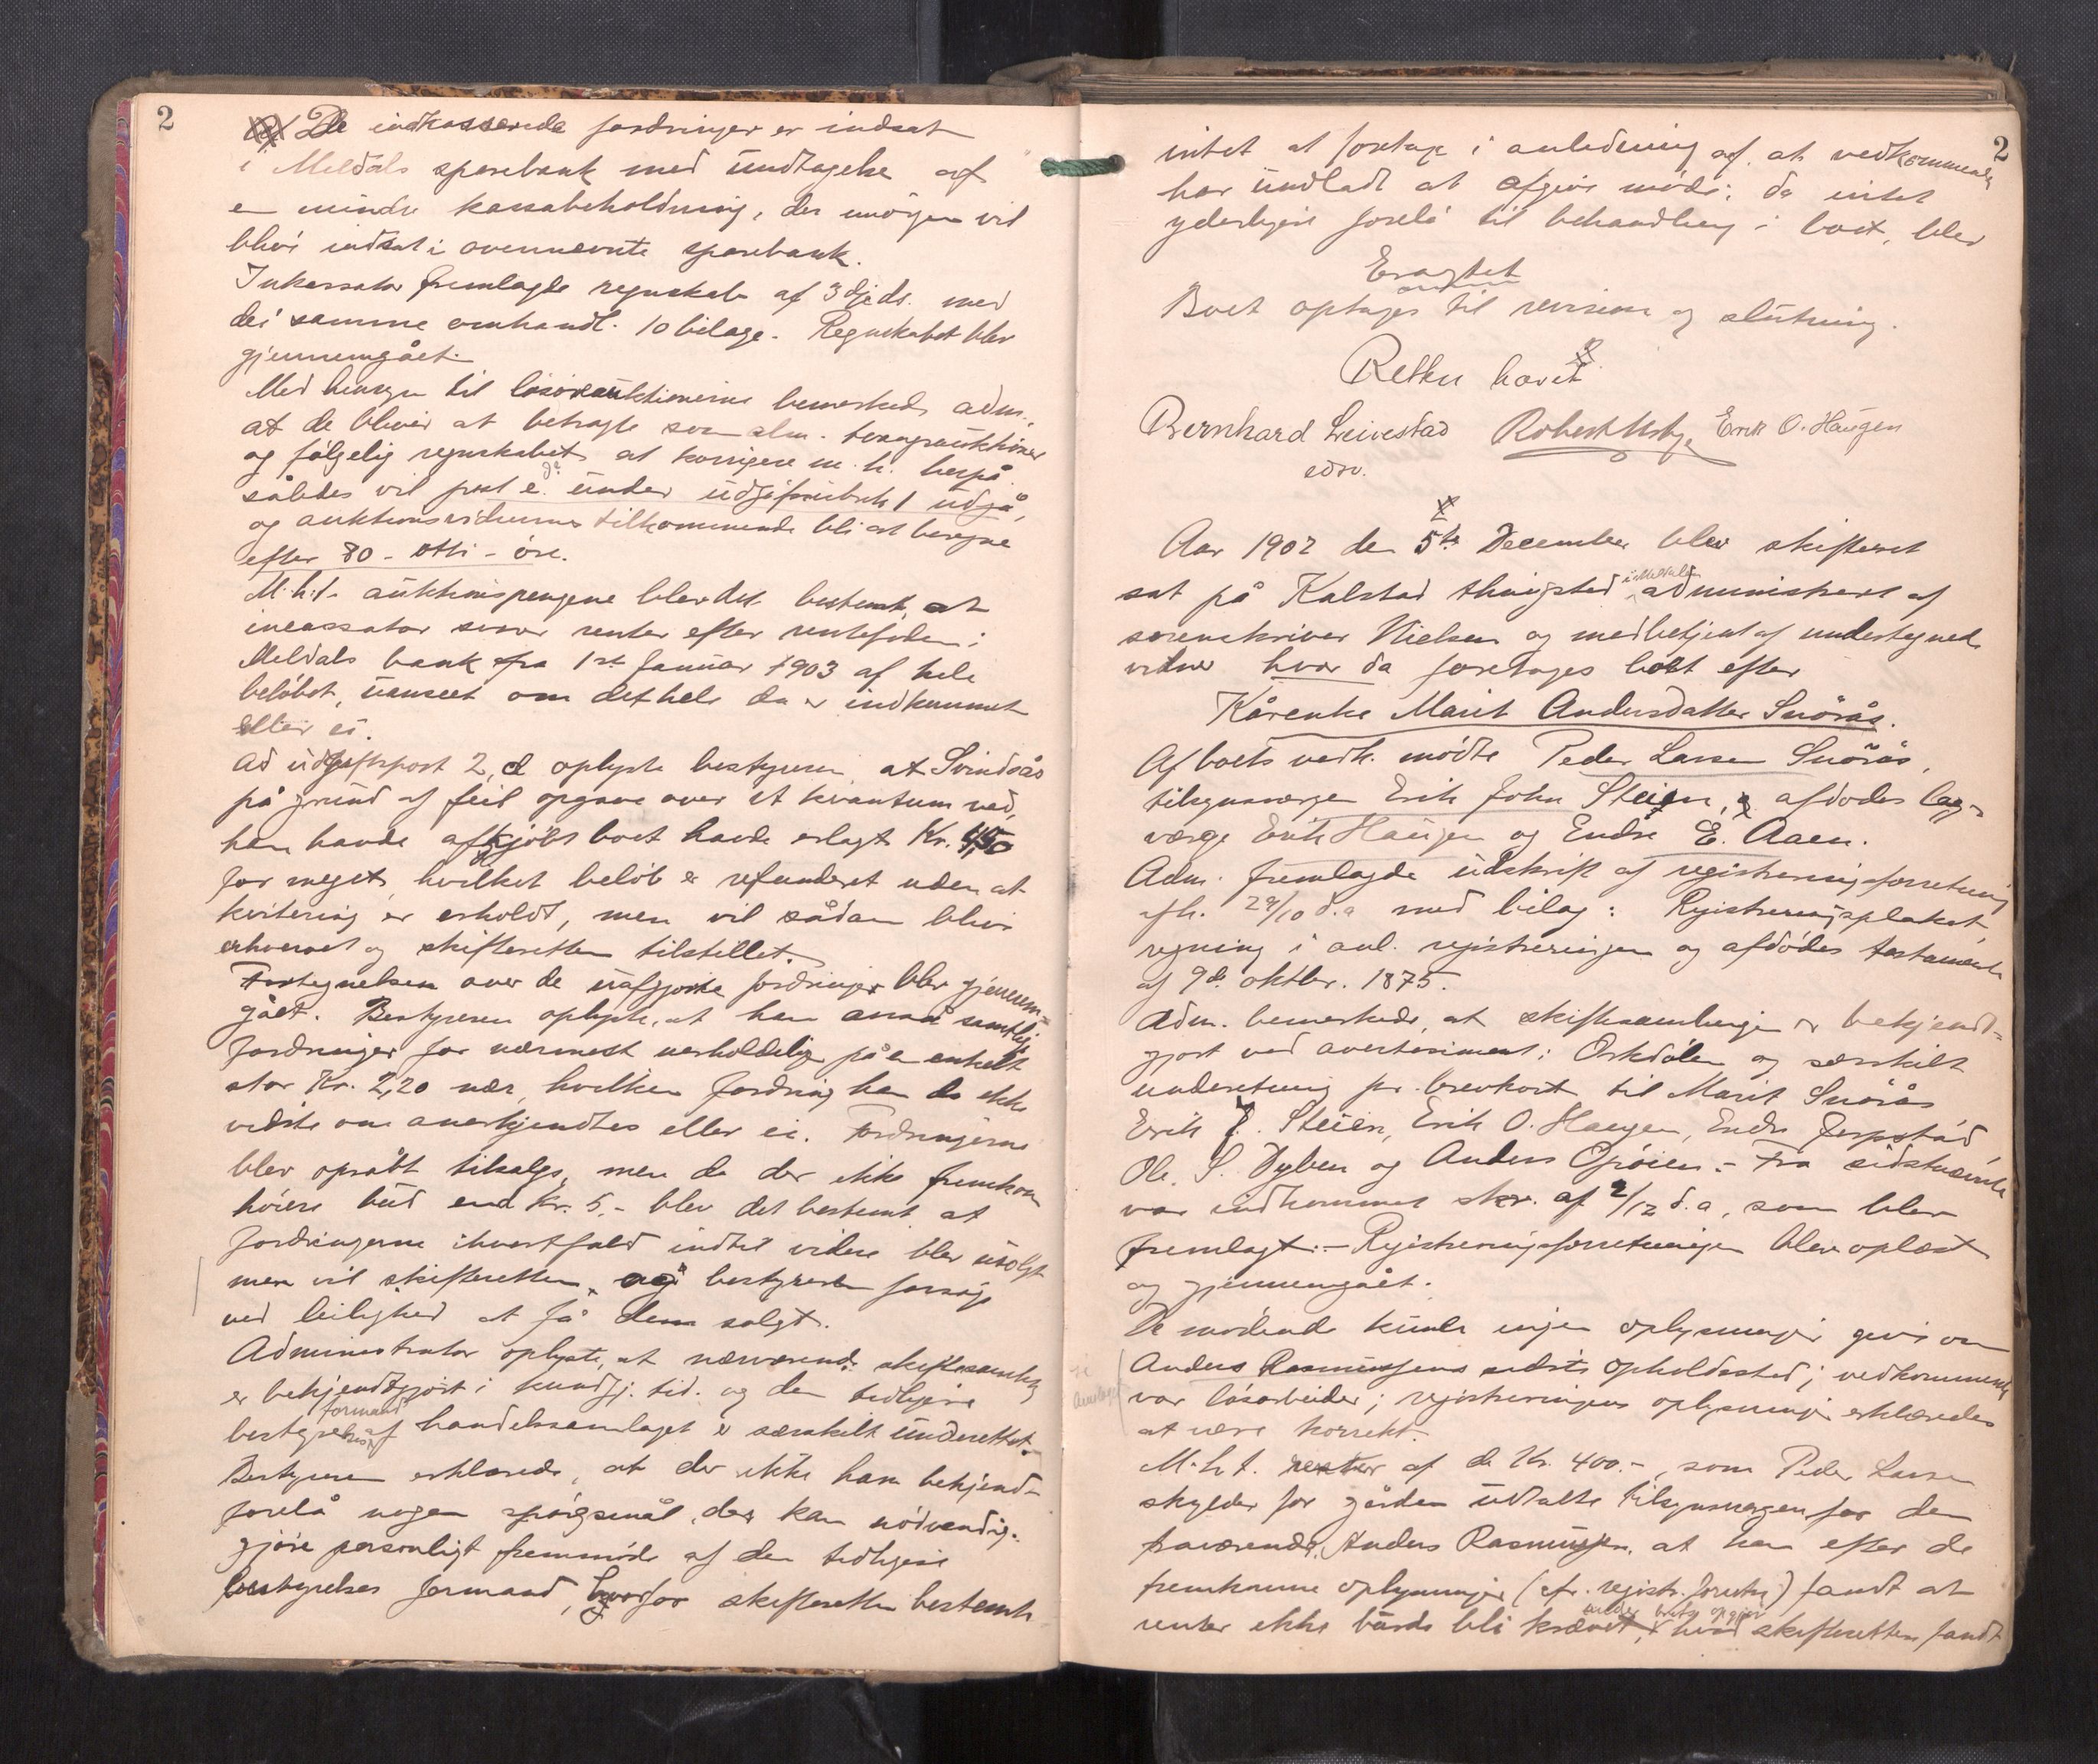 2
De indkasserede fordringer er indsat
i Meldals sparebank med undtagelse af
en mindre kassabeholdning, der imorgen vil
blive indsat i ovennævnte sparebank.
Inkassator fremlagde regnskab af 3dje ds. med
de i samme omhandl. 10 bilage. Regnskabet blev
gjennemgået.
Med hensyn til løsøreauktionerne bemærkede adm.
at de bliver at betragte som alm. tvangsauktioner
og følgelig regnskabet at korrigere m. h. herpå.
således vil post e. under udgiftsrubrik 1 udgå,
og auktionsvidnernes tilkommende bli at beregne
efter 80 - otti - øre.
M.h.t. auktionspengene blev det bestemt, at
incassator svarer renter efter rentefoden i
Meldals bank fra 1ste Januar 1903 af hele
beløbet, uanseet om det hele da er indkommet
eller ei.
Ad udgiftspost 2, d oplyste bestyreren, at Svindsås
på grund af feil opgave over et kvantum ved,
han havde afkjøbt boet havde erlagt Kr. 4,50
for meget, hvilket beløb er refunderet uden at
kvitering er erholdt, men vil sådan blive
erhvervet og skifteretten tilstillet.
Fortegnelsen over de uafgjorte fordringer blev gjennem-
gået. Bestyreren oplyste, at han anså samtlige
fordringer for nærmest uerholdelige på en enkelt
stor Kr. 2,20 nær, hvilken fordring han do ikke
vidste om anerkjendtes eller ei. Fordringerne
blev opråbt tilsalgs, men da der ikke fremkom
høiere bud end Kr. 5.- blev det bestemt at
fordringerne ihvertfald indtil videre blev usolgt
men vil skifteretten og bestyreren forsøge
ved leilighed at få dem solgt.
Administrator oplyste, at nærværende skiftesamling
er bekjendtgjort i kundgj. tid. og den tidligere
formand
bestyrelses af handelssamlaget er særskilt underettet.
Bestyreren erklærede, at der ikke ham bekjendt
forelå nogen spørgsmål, der kan nødvendig-
gjøre personligt fremmøde af den tidligere
bestyrelses formand, hvorfor skifteretten bestemte
2
intet at foretage i anledning af at vedkommende
har undladt at afgive møde; da intet
yderligere forelå til behandling i boet, blev
Eragtet
Boet optages til revision og slutning.
Retten hævet
Bernhard Leivestad Robert Usbye Erik O. Haugen
edsv.
Aar 1902 den 5te December blev skifteret
sat på Kalstad thingsted i Meldalen administrert af
sorenskriver Nielsen og medbetjent af undertegnede
vidner hvor da foretages boet efter
Kårenke Marit Andersdatter Snörås.
Af boets vedk. mødte Peder Larsen Snörås,
tilsynsværge Erik John Steien, afdødes lag-
værge Erik Haugen og Endre E. Aaen.
Adm. fremlagde udskrift af registreringsforretning
afh. 29/10 d.a med bilag: Registreringsplakat,
regning i anl. registreringen og afdødes testamente
af 9de oktbr. 1875.
Adm. bemærkede, at skiftesamlingen er bekjendt-
gjort ved avertissiment i Orkdølen og særskilt
underetning pr. brevkort til Marit Snörås
Erik J. Steien, Erik O. Haugen, Endre Jerpstad
Ole S. Dyben og Anders Opøien. - Fra sidstnævnte
var indkommet skr. af 2/12 d.a, som blev
fremlagt. - Registreringsforretningen blev oplæst
og gjennemgået.
De mødende kunde ingen oplysninger give om
Anders Rasmussens sidste opholdssted; vedkommende
var løsarbeider; registreringens oplysninger erklæredes
at være korrekt.
M.h.t. renter af de Kr. 400.-, som Peder Larsen
skylder for gården udtalte tilsynsværgen for den
fraværende Anders Rasmussen, at han efter de
fremkomne oplysninger (cfr. registr. forretn) fandt at
renter ikke burde bli krævet, hvad skifteretten fandt